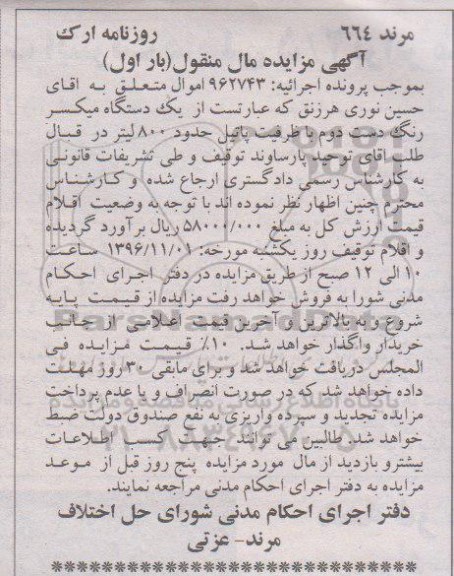 مرند ۶۶۴ روزنامه ارک
آگهی مزایده مال منقول(بار اول)
بموجب پرونده اجرائیه: ۹۶۲۷۴۳ اموال متعلق به اقای
حسین نوری هرزنق که عبارتست از یک دستگاه میکسر
رنگ دست دوم با ظرفیت پاتیل حدود ۸۰۰ لیتر در قبال
طلب اقای توحید پارساوند توقیف و طی تشریفات قانونی
به کارشناس رسمی دادگستری ارجاع شده و کارشناس
محترم چنین اظهار نظر نموده اند با توجه به وضعیت اقلام
قیمت ارزش کل به مبلغ ۵۸۰۰۰/۰۰۰ ریال برآورد گردیده
و اقلام توقیف روز یکشنبه مورخه: ۱۳۹۶/۱۱/۰۱ ساعت
۱۰ الی ۱۲ صبح از طریق مزایده در دفتر اجرای احکام
مدنی شورا به فروش خواهد رفت مزایده از قیمت پایه
شروع و به بالاترین و آخرین قیمت اعلامی از جانب
خریدار واگذار خواهد شد. ۱۰٪ قیمت مزایده فی
المجلس دریافت خواهد شد و برای مابقی ۳۰ روز مهلت
داده خواهد شد که در صورت انصراف و یا عدم پرداخت
مزایده تجدید و سپرده واریزی به نفع صندوق دولت ضبط
خواهد شد. طالبین می توانند جهت کسب اطلاعات
بیشتر و بازدید از مال مورد مزایده پنج روز قبل از موعد
مزایده به دفتر اجرای احکام مدنی مراجعه نمایند.
دفتر اجرای احکام مدنی شورای حل اختلاف
مرند- عزتی
ParsNamadData
۰۲۱-۸۸۳۴۹۶۷۰-۵